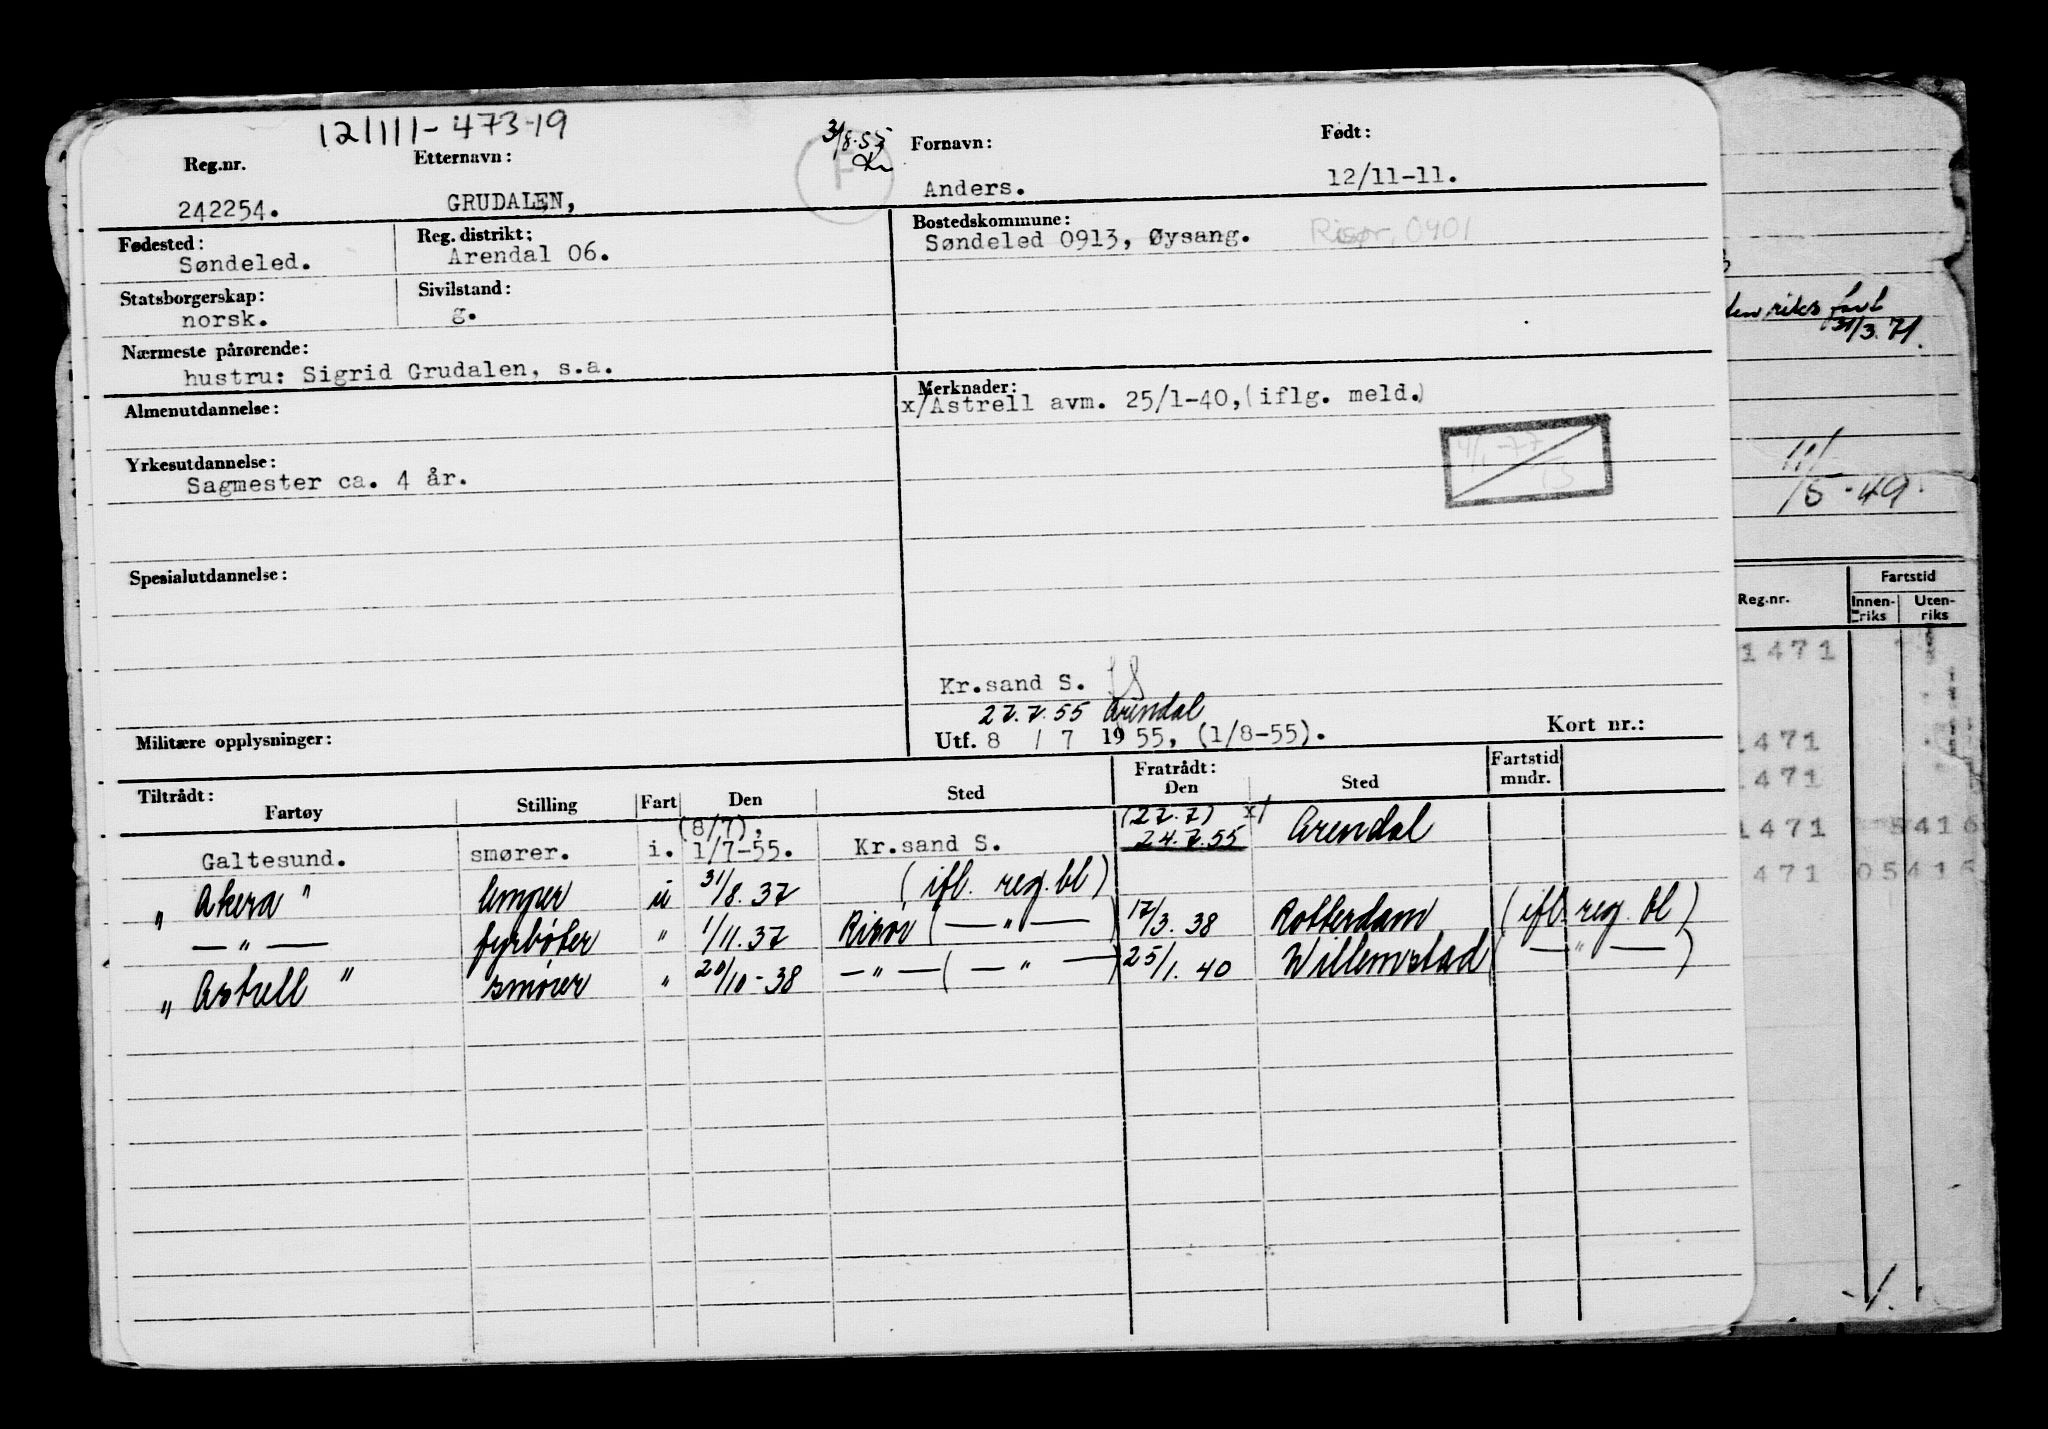 121111-473-19
3/8.55
Reg.nr. Etternavn: Fornavn: Født:
242254. GRUDALEN, Anders. 12/11-11.
Fødested: Reg. distrikt: Bostedskommune:
Søndeled. Arendal 06. Søndeled 0913, Øysang. Risør, 0401
Statsborgerskap: Sivilstand:
norsk. g.
Nærmeste pårørende:
hustru: Sigrid Grudalen, s.a.
Almenutdannelse: Merknader:
x/Astrell avm. 25/1-40,(iflg. meld.)
Yrkesutdannelse:
Sagmester ca. 4 år.
Spesialutdannelse:
Kr.sand S.
27.7.55 Arendal
Militære opplysninger: Utf. 8 / 7 1955, (1/8-55). Kort nr.:
Tiltrådt: Fratrådt: Fartstid
Fartøy Stilling Fart Den Sted Den Sted mndr.
(8/7), (27.7) x/
Galtesund. smører. i. 1/7-55. Kr.sand S. 24.7.55 Arendal
" Akera " lemper u 31/8.37 (ifl. reg.bl)
— " — fyrbøter " 1/11.37 Risør (— " —) 17/3.38 Rotterdam (ifl. reg. bl)
" Astrell " smører " 20/10-38 — " — (— " —) 25/1.40 Willemstad (— " —)
riks fart
31/3.71.
15-49.
Fartstid
Reg.nr. Innen-riks Uten-riks
1471
1471
1471
1471 5416
471 05416